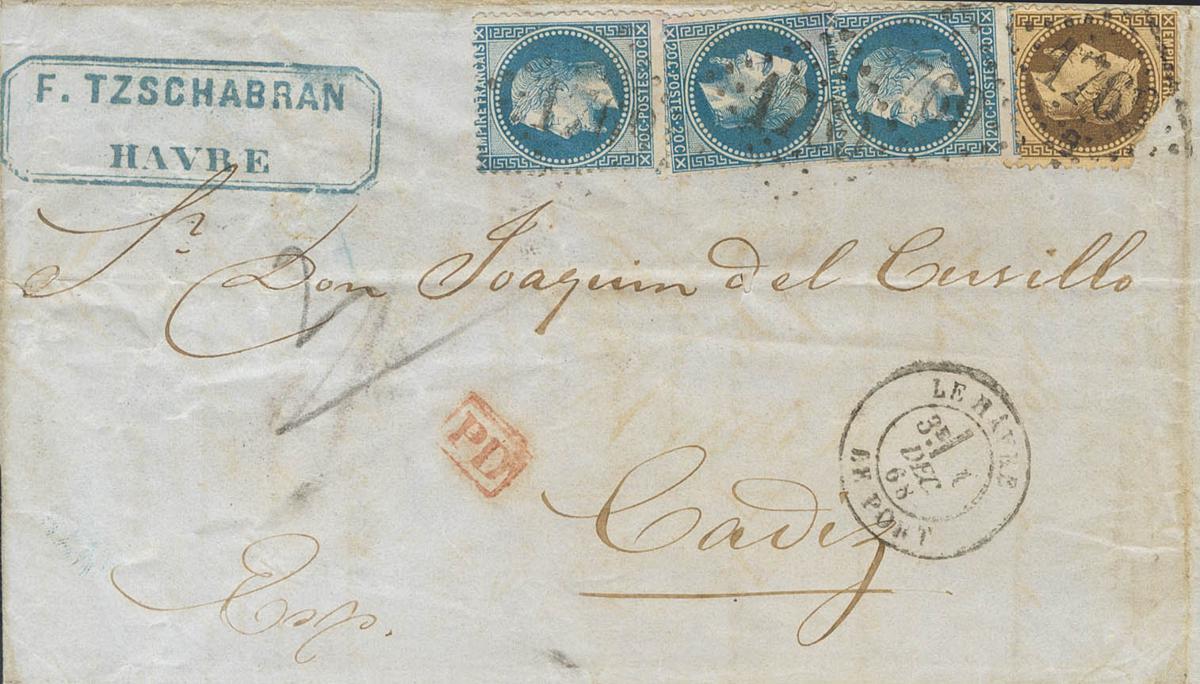 F. TZSCHABRAN
HAVRE
EMPIRE FRANÇAIS
20C-POSTES-20C
20C-POSTES-20C
20C-POSTES-20C
1769
Sr. Don Joaquim del Cuvillo
PD
LE HAVRE
3E
1
DEC
68
LE PORT
Cadiz
Esp.